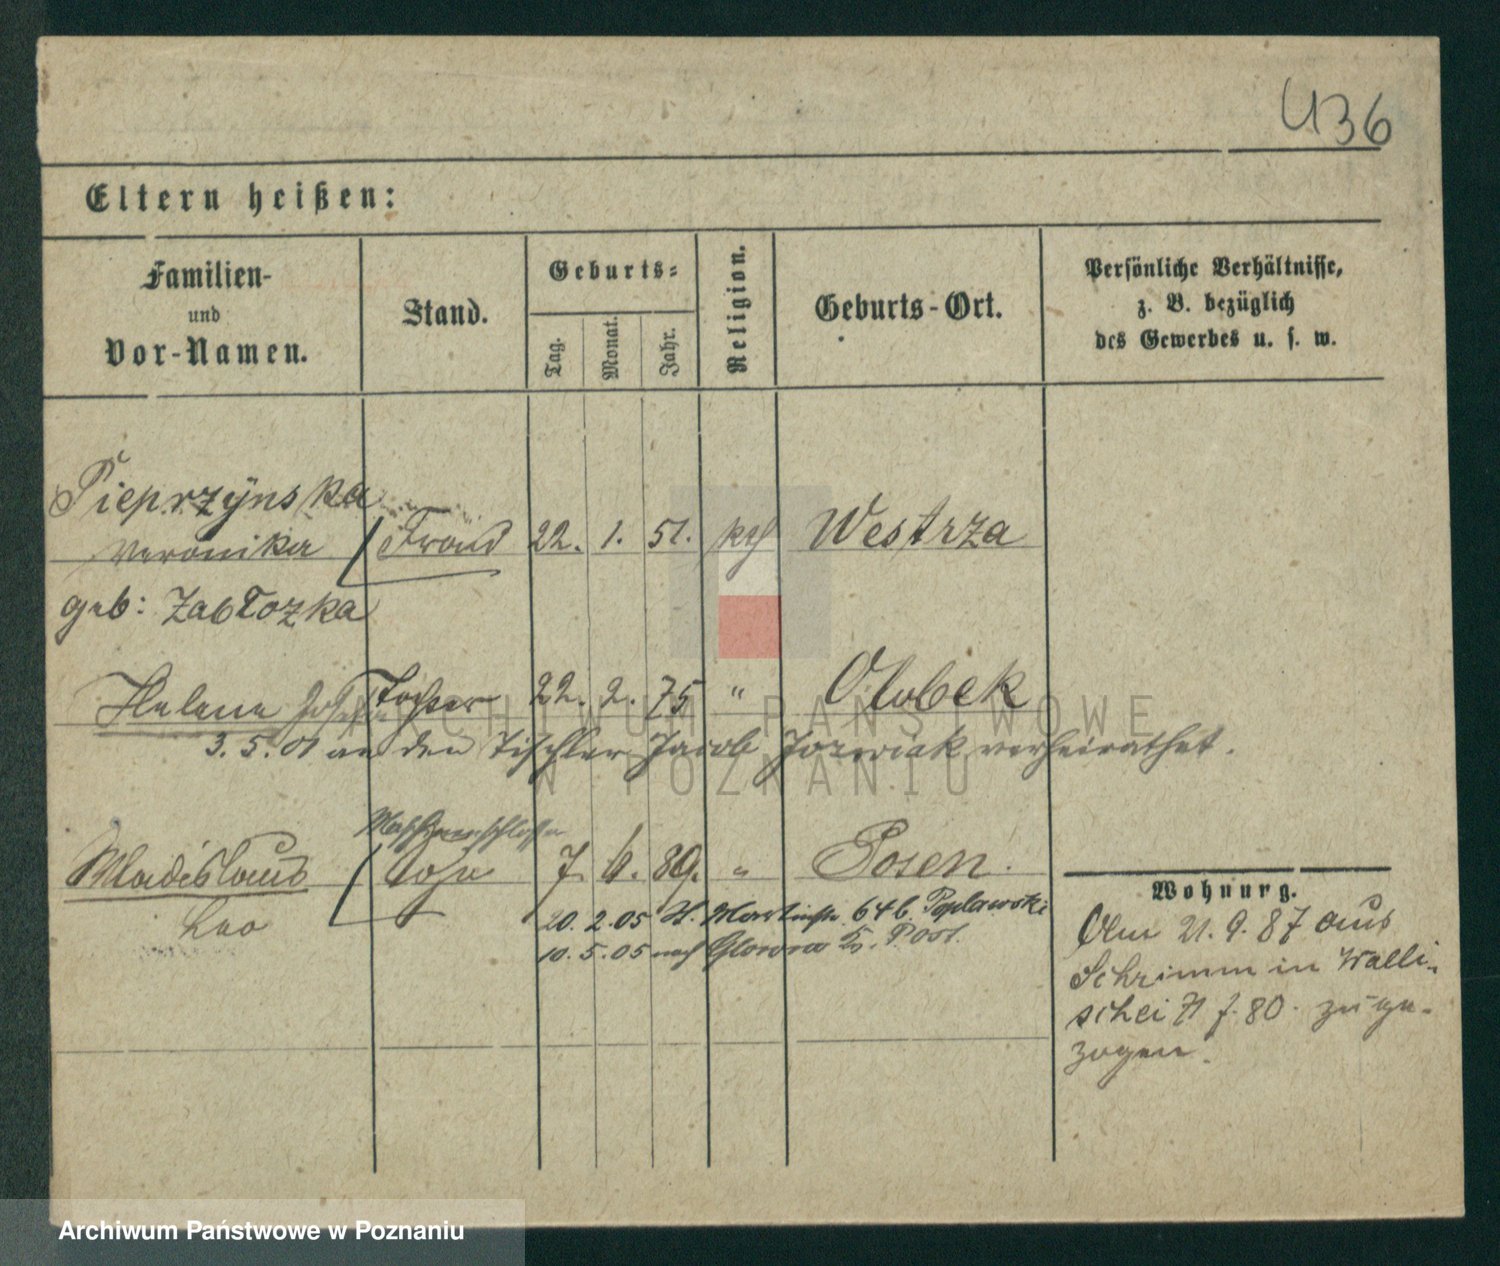 436
Eltern heißen:
Familien-
und
Vor-Namen.
Stand.
Geburts-
Tag.
Monat.
Jahr.
Religion.
Geburts-Ort.
Persönliche Verhältnisse,
z. B. bezüglich
des Gewerbes u. s. w.
Pieprzÿnska
Veronika Frau 22. 1. 51. kth Westrza
geb: Zabłozka
Helene Josefa Tochter 22. 2. 75 " Olobek
3. 5. 01 an den Tischler Jacob Jozwiak verheirathet.
Wladislaus Sohn 7. 6. 89. " Posen.
Leo
20. 2. 05 St. Martinstr. 64 b. Poplawski
10. 5. 05 nach Glowno Kr. P. Ost.
Wohnung.
Am 21. 9. 87 aus
Schrimm in Walli-
schei 71 f. 80. zuge-
zogen.
ARCHIWUM PAŃSTWOWE
W POZNANIU
Archiwum Państwowe w Poznaniu